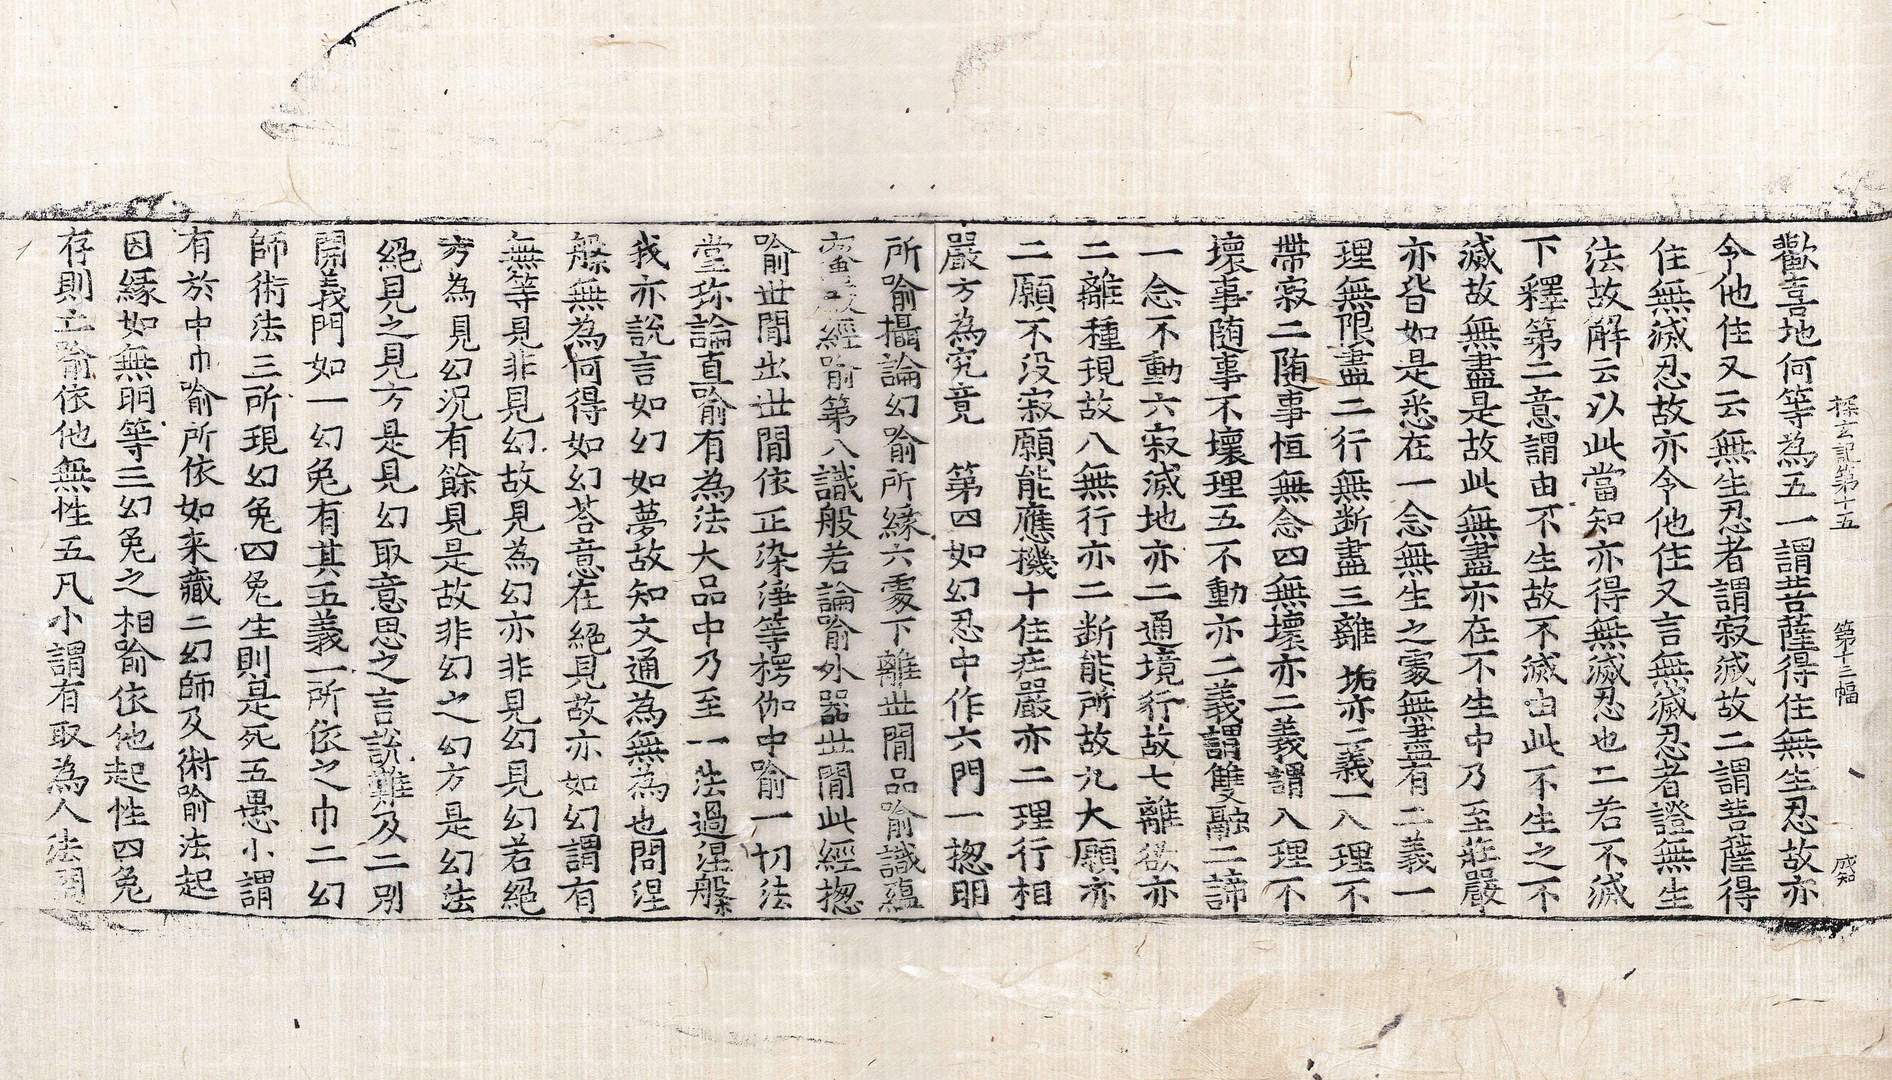 探玄記第十五 第十三幅 成知
歡喜地何等為五一謂菩薩得住無生忍故亦
令他住又云無生忍者謂寂滅故二謂菩薩得
住無滅忍故亦令他住又言無滅忍者證無生
法故解云以此當知亦得無滅忍也二若不滅
下釋第二意謂由不生故不滅由此不生之不
滅故無盡是故此無盡亦在不生中乃至莊嚴
亦皆如是悉在一念無生之處無盡有二義一
理無限盡二行無断盡三離垢亦二義一八理不
帶寂二随事恒無念四無壞亦二義謂入理不
壞事随事不壞理五不動亦二義謂雙融二諦
一念不動六寂滅地亦二通境行故七離欲亦
二離種現故八無行亦二断能所故九大願亦
二願不没寂願能應機十住在嚴亦二理行相
嚴方為究竟 第四如幻忍中作六門一揔明
所喻攝論幻喻所緣六處下離世間品喻識蘊
密嚴經喻第八識般若論喻外器世間此經揔
喻世間出世間依正染淨等楞伽中喻一切法
堂珎論直喻有為法大品中乃至一法過涅槃
我亦說言如幻如夢故知文通為無為也問涅
槃無為何得如幻荅意在絕見故亦如幻謂有
無等見非見幻故見為幻亦非見幻見幻若絕
方為見幻況有餘見是故非幻之幻方是幻法
絕見之見方是見幻取意思之言說難及二別
開義門如一幻兔有其五義一所依之巾二幻
師術法三所現幻兔四兔生則是死五愚小謂
有於中巾喻所依如来藏二幻師及術喻法起
因緣如無明等三幻兔之相喻依他起性四兔
存則亡喻依他無性五凡小謂有取為人法問